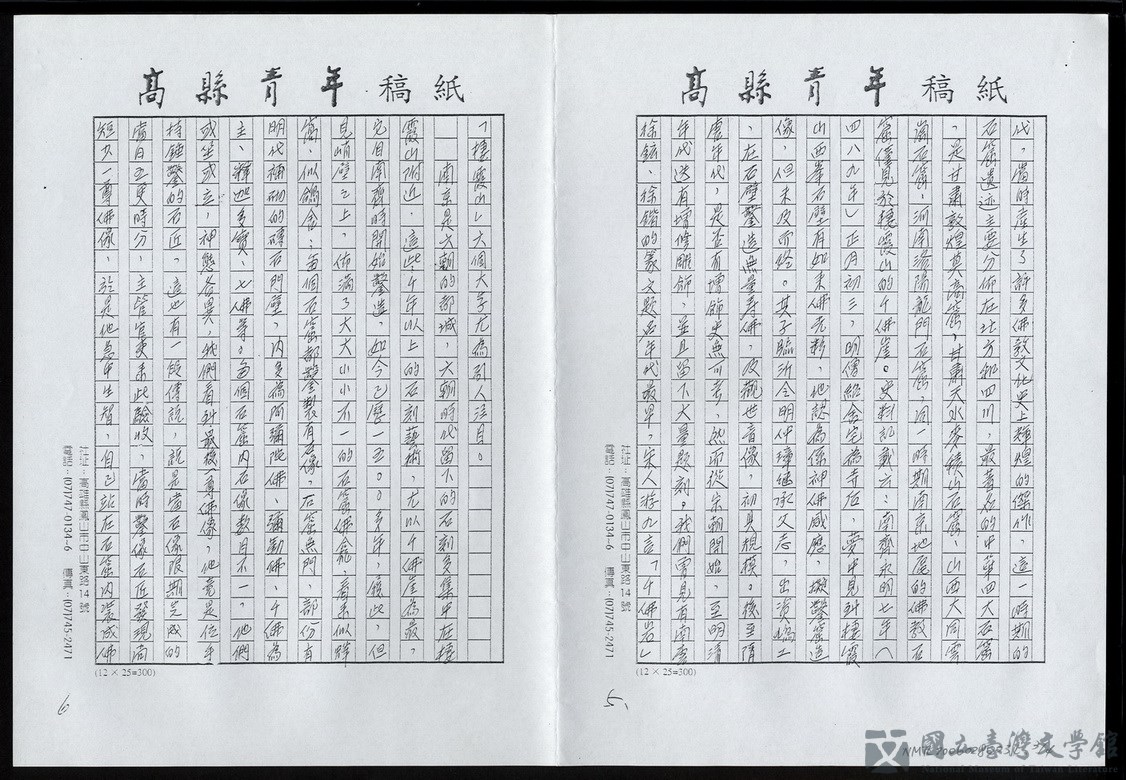 高縣青年稿紙
代，當時產生了許多佛教文化史上輝煌的傑作，這一時期的
石窟遺迹主要分佈在北方和四川，最著名的中華四大石窟
，是甘肅敦煌莫高窟，甘肅天水麥積山石窟，山西大同雲
崗石窟，河南洛陽龍門石窟，同一時期南京地區的佛教石
窟僅見於棲霞山的千佛崖。史料記載六：南齊永明七年（
四八九年）正月初三，明僧紹舍宅為寺后，夢中見到棲霞
山西峯石壁有如來佛光彩，他認為係神佛感應，擬鑿窟造
像，但未及而終。其子臨沂令明仲璋繼承父志，出資鳩工
，在石壁鑿造無量壽佛，及觀世音像，初具規模。後至隋
唐年代，是否有增飾史無可考，然而從宋朝開始，至明清
年代迭有增修雕飾，並且留下大量題刻。我們曾見有南唐
徐鉉、徐鍇的篆文題名年代最早，宋人游九言「千佛岩」
社址：高雄縣鳳山市中山東路14號
電話：(07)7/47-0134-6　傳真：(07)7/45-2471
(12 × 25=300)
5、
高縣青年稿紙
「棲霞山」大個大字尤為引人注目。
南京是六朝的都城，六朝時代留下的石刻多集中在棲
霞山附近，這些千年以上的石刻藝術，尤以千佛崖為最，
它自南齊時開始鑿造，如今已歷一五〇〇多年，從此，但
見峭壁之上，佈滿了大大小小不一的石窟佛龕，看來似蜂
窩，似鴿舍；每個石窟都鑿製有石像，石窟無門，部份有
明代補砌的磚石門壁，內多為阿彌陀佛、彌勒佛、千佛為
主、釋迦多寶、七佛等。每個石窟內石像數目不一，他們
或坐或立，神態各異，我們看到最後一尊佛像，他竟是位手
持錘鑿的石匠，這也有一段傳說，說是當石像限期完成的
當日五更時分，主管官吏來此驗收，當時鑿像石匠發現尚
短少一尊佛像，於是他急中生智，自己站在石窟內裝成佛
社址：高雄縣鳳山市中山東路14號
電話：(07)7/47-0134-6　傳真：(07)7/45-2471
(12 × 25=300)
6
國立臺灣文學館
National Museum of Taiwan Literature